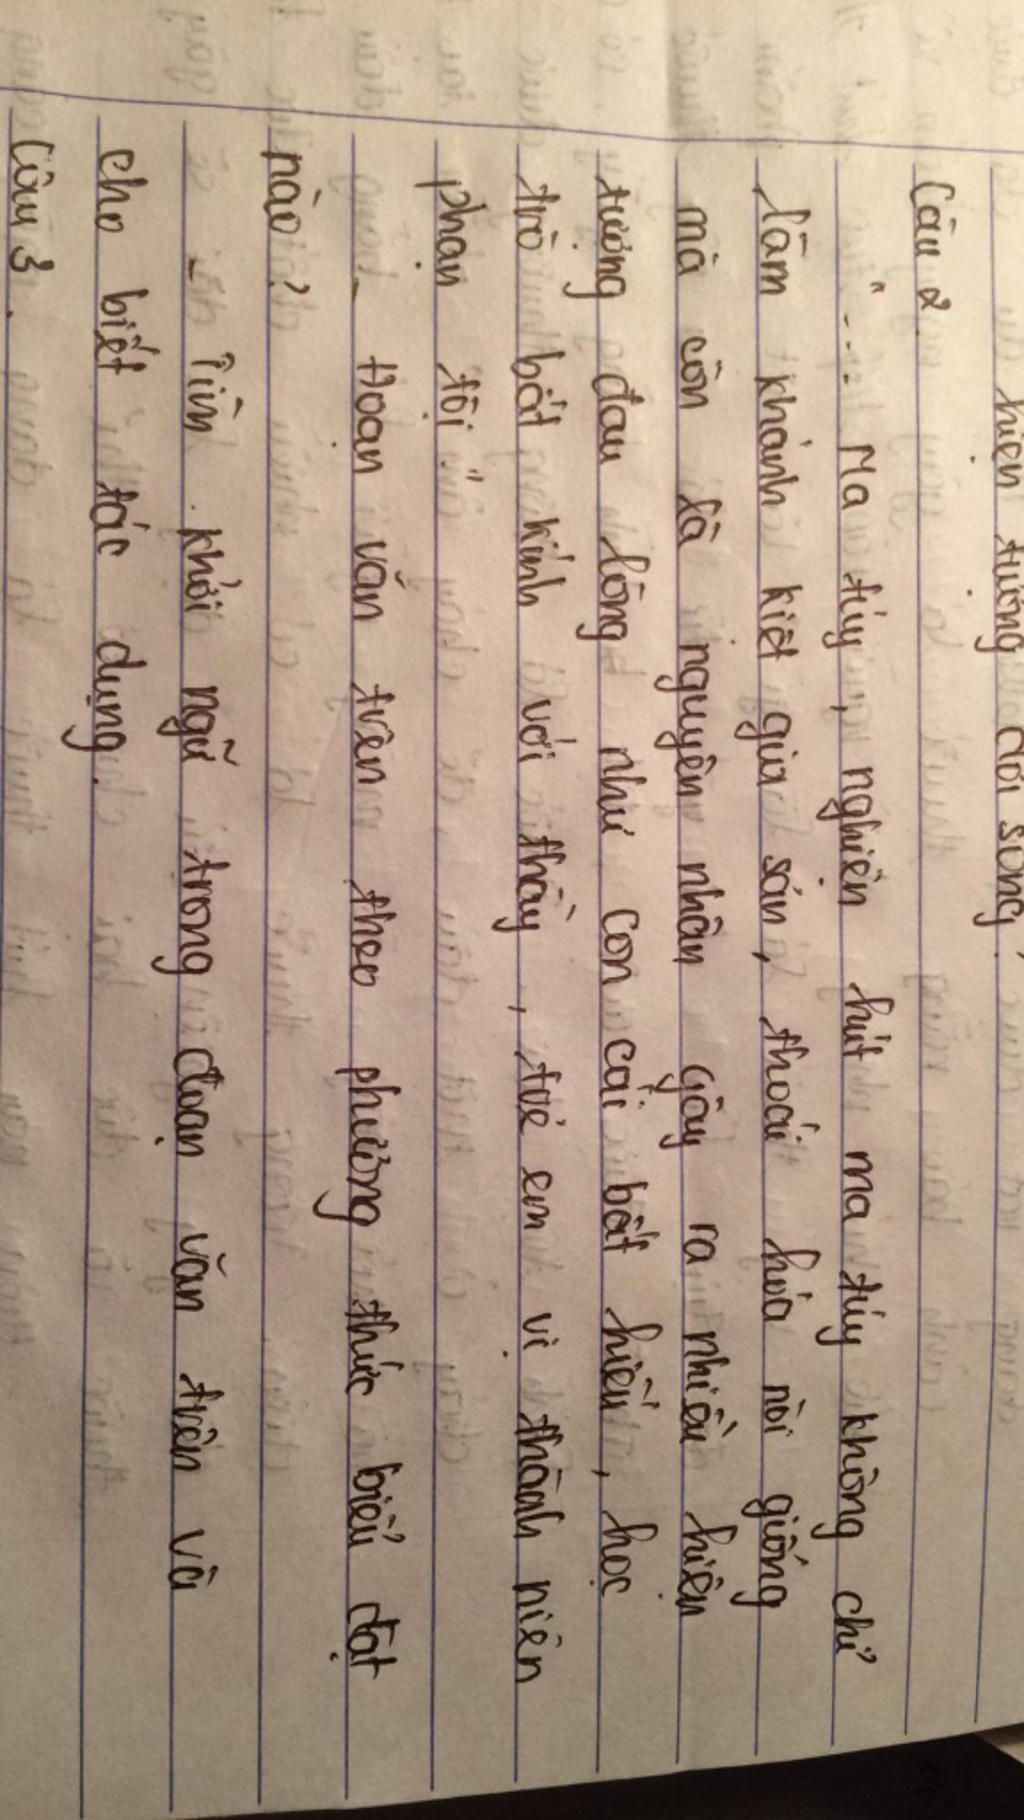 hiện tượng đời sống.
Câu 2.
"... Ma túy, nghiện hút ma túy không chỉ
làm khánh kiệt gia sản, thoái hóa nòi giống
mà còn là nguyên nhân gây ra nhiều hiện
tượng đau lòng như con cái bất hiếu, học
trò bất kính với thầy, trẻ em vị thành niên
phạm tội"
- Đoạn văn trên theo phương thức biểu đạt
nào?
- Tìm khởi ngữ trong đoạn văn trên và
cho biết tác dụng.
Câu 3.